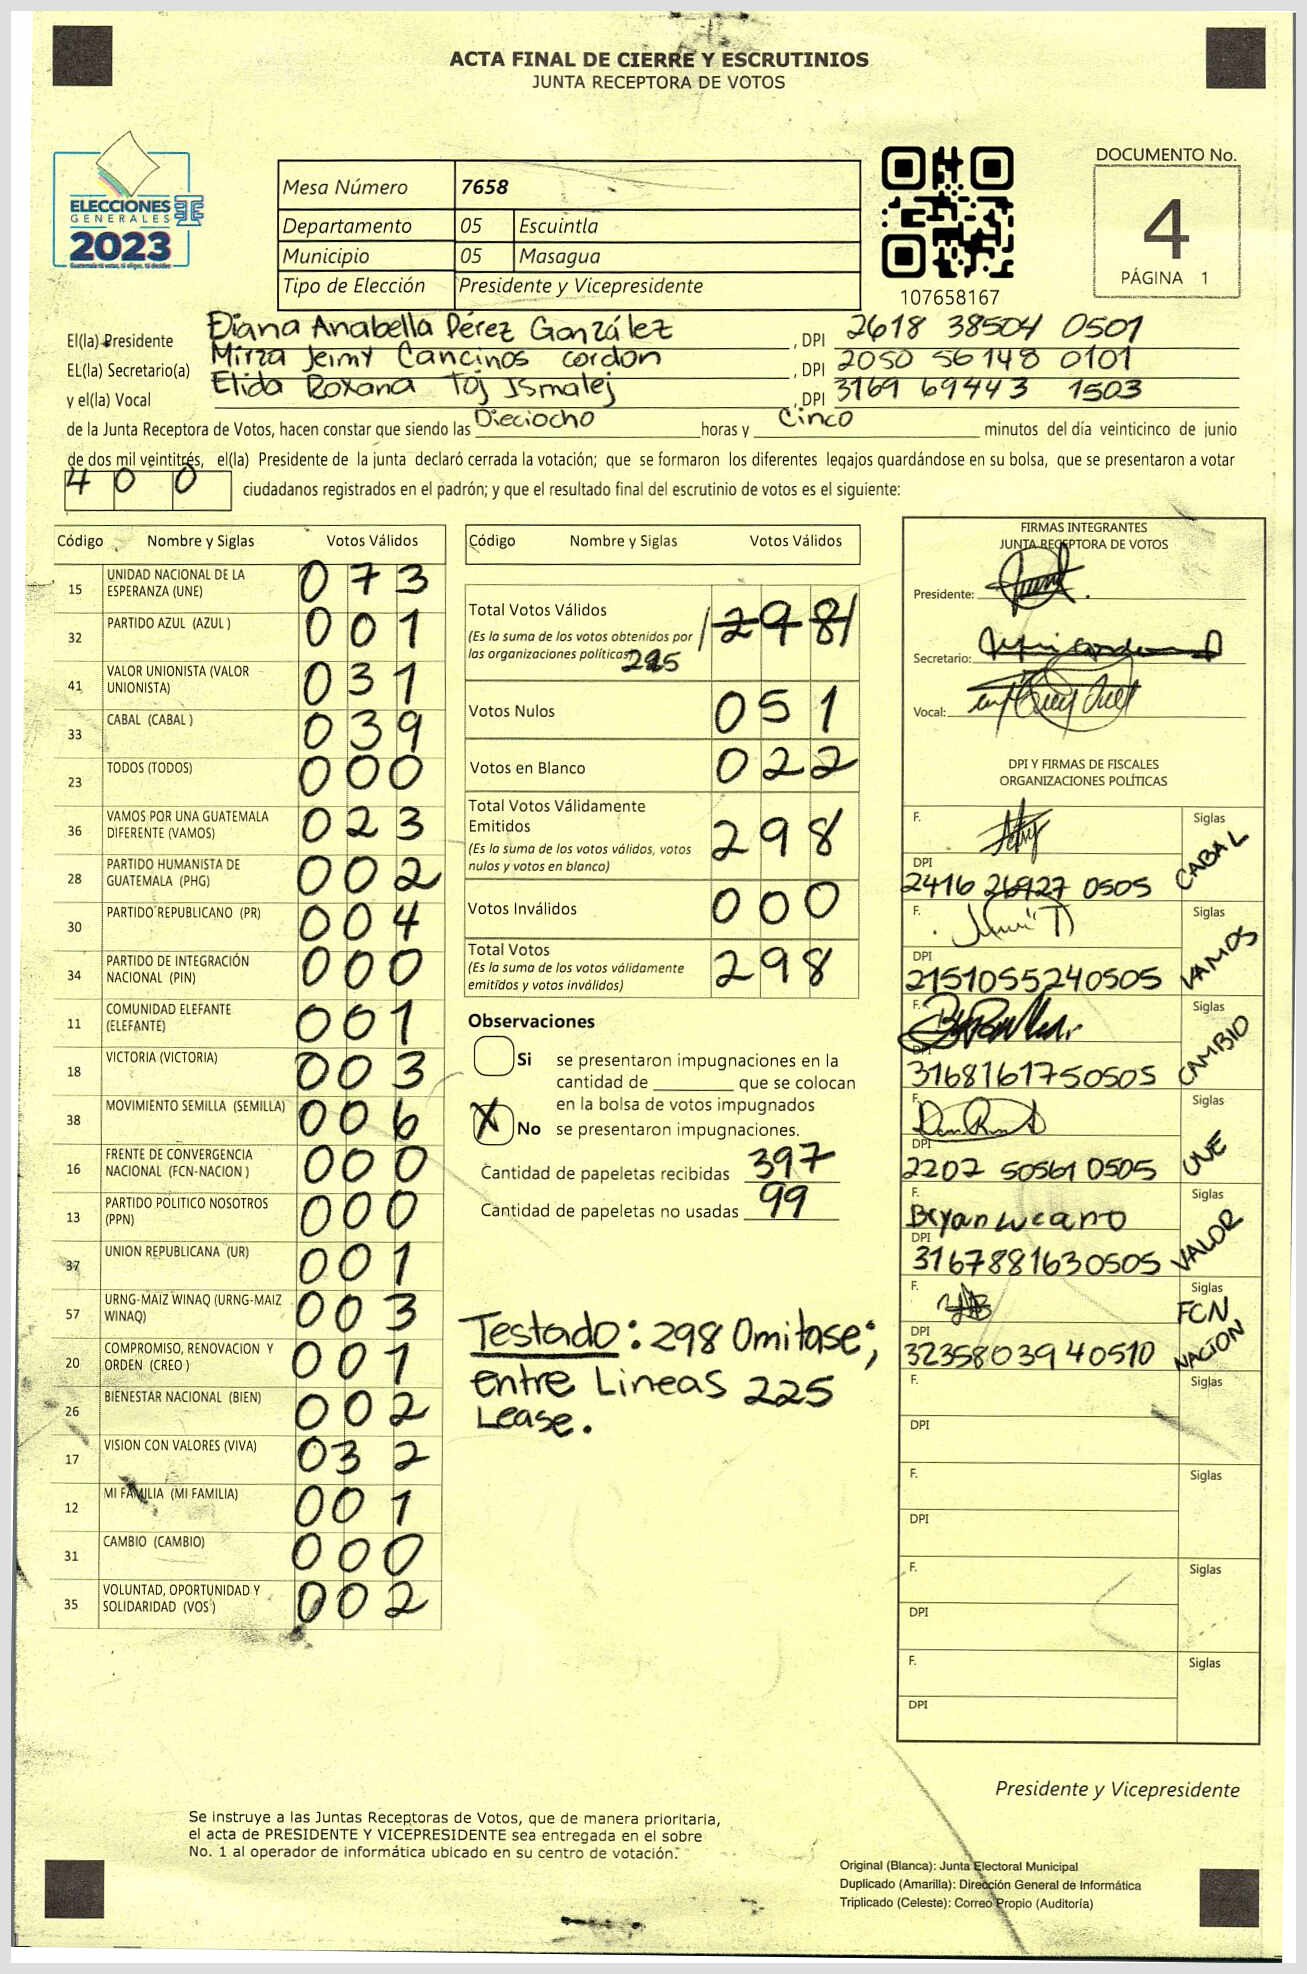 ACTA FINAL DE CIERRE Y ESCRUTINIOS
JUNTA RECEPTORA DE VOTOS
ELECCIONES
GENERALES
2023
Guatemala tú votas, tú eliges, tú decides
Mesa Número 7658
Departamento 05 Escuintla
Municipio 05 Masagua
Tipo de Elección Presidente y Vicepresidente
107658167
DOCUMENTO No.
4
PÁGINA 1
El(la) Presidente Diana Anabella Pérez González , DPI 2618 38504 0501
EL(la) Secretario(a) Mirza Jeimy Cancinos cordon , DPI 2050 56148 0101
y el(la) Vocal Elida Roxana Toj Ismalej , DPI 3169 69443 1503
de la Junta Receptora de Votos, hacen constar que siendo las Dieciocho horas y Cinco minutos del día veinticinco de junio
de dos mil veintitrés, el(la) Presidente de la junta declaró cerrada la votación; que se formaron los diferentes legajos guardándose en su bolsa, que se presentaron a votar
400 ciudadanos registrados en el padrón; y que el resultado final del escrutinio de votos es el siguiente:
Código Nombre y Siglas Votos Válidos
15 UNIDAD NACIONAL DE LA ESPERANZA (UNE) 073
32 PARTIDO AZUL (AZUL ) 001
41 VALOR UNIONISTA (VALOR UNIONISTA) 031
33 CABAL (CABAL ) 039
23 TODOS (TODOS) 000
36 VAMOS POR UNA GUATEMALA DIFERENTE (VAMOS) 023
28 PARTIDO HUMANISTA DE GUATEMALA (PHG) 002
30 PARTIDO REPUBLICANO (PR) 004
34 PARTIDO DE INTEGRACIÓN NACIONAL (PIN) 000
11 COMUNIDAD ELEFANTE (ELEFANTE) 001
18 VICTORIA (VICTORIA) 003
38 MOVIMIENTO SEMILLA (SEMILLA) 006
16 FRENTE DE CONVERGENCIA NACIONAL (FCN-NACION ) 000
13 PARTIDO POLITICO NOSOTROS (PPN) 000
37 UNION REPUBLICANA (UR) 001
57 URNG-MAIZ WINAQ (URNG-MAIZ WINAQ) 003
20 COMPROMISO, RENOVACION Y ORDEN (CREO ) 001
26 BIENESTAR NACIONAL (BIEN) 002
17 VISION CON VALORES (VIVA) 032
12 MI FAMILIA (MI FAMILIA) 001
31 CAMBIO (CAMBIO) 000
35 VOLUNTAD, OPORTUNIDAD Y SOLIDARIDAD (VOS ) 002
Código Nombre y Siglas Votos Válidos
Total Votos Válidos 298
(Es la suma de los votos obtenidos por
las organizaciones políticas) 225
Votos Nulos 051
Votos en Blanco 022
Total Votos Válidamente
Emitidos 298
(Es la suma de los votos válidos, votos
nulos y votos en blanco)
Votos Inválidos 000
Total Votos 298
(Es la suma de los votos válidamente
emitidos y votos inválidos)
Observaciones
Si se presentaron impugnaciones en la
cantidad de ________ que se colocan
en la bolsa de votos impugnados
X No se presentaron impugnaciones.
Cantidad de papeletas recibidas 397
Cantidad de papeletas no usadas 99
Testado: 298 Omitase;
entre Lineas 225
Lease.
FIRMAS INTEGRANTES
JUNTA RECEPTORA DE VOTOS
Presidente:
Secretario:
Vocal:
DPI Y FIRMAS DE FISCALES
ORGANIZACIONES POLÍTICAS
F. Siglas CABAL
DPI
2416 26927 0505
F. Siglas VAMOS
DPI
2151055240505
F. Siglas CAMBIO
DPI
3168161750505
F. Siglas UNE
DPI
2202 50561 0505
F. Siglas VALOR
Bryan Lucano
DPI
3167881630505
F. Siglas FCN NACION
DPI
3235803940510
F. Siglas
DPI
F. Siglas
DPI
F. Siglas
DPI
F. Siglas
DPI
Presidente y Vicepresidente
Se instruye a las Juntas Receptoras de Votos, que de manera prioritaria,
el acta de PRESIDENTE Y VICEPRESIDENTE sea entregada en el sobre
No. 1 al operador de informática ubicado en su centro de votación.
Original (Blanca): Junta Electoral Municipal
Duplicado (Amarilla): Dirección General de Informática
Triplicado (Celeste): Correo Propio (Auditoría)